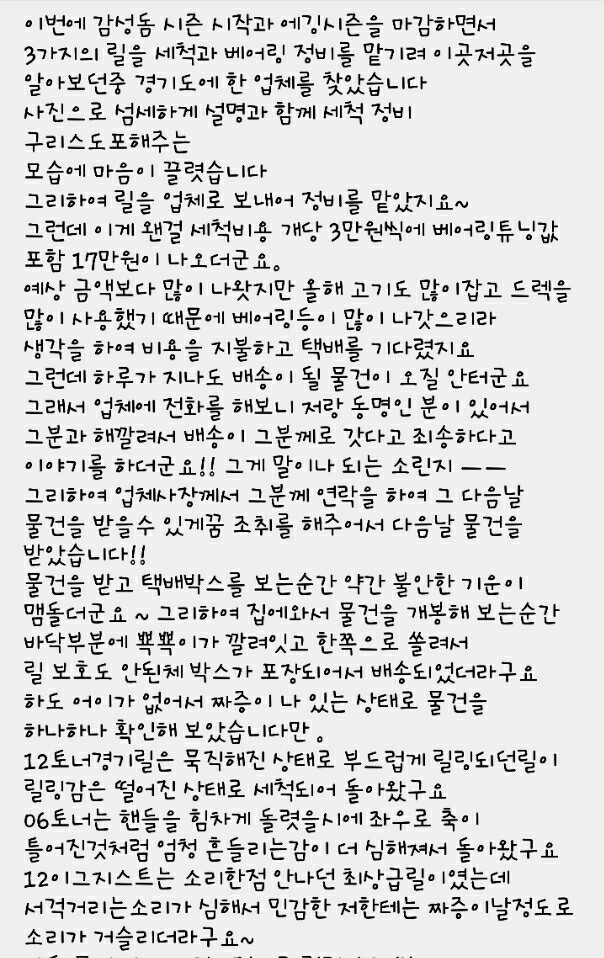 이번에 감성돔 시즌 시작과 에깅시즌을 마감하면서
3가지의 릴을 세척과 베어링 정비를 맡기려 이곳저곳을
알아보던중 경기도에 한 업체를 찾았습니다
사진으로 섬세하게 설명과 함께 세척 정비
구리스도포해주는
모습에 마음이 끌렷습니다
그리하여 릴을 업체로 보내어 정비를 맡았지요~
그런데 이게 왠걸 세척비용 개당 3만원씩에 베어링튜닝값
포함 17만원이 나오더군요.
예상 금액보다 많이 나왓지만 올해 고기도 많이잡고 드렉을
많이 사용했기 때문에 베어링등이 많이 나갓으리라
생각을 하여 비용을 지불하고 택배를 기다렸지요
그런데 하루가 지나도 배송이 될 물건이 오질 안터군요
그래서 업체에 전화를 해보니 저랑 동명인 분이 있어서
그분과 해깔려서 배송이 그분께로 갓다고 죄송하다고
이야기를 하더군요!! 그게 말이나 되는 소린지 ㅡㅡ
그리하여 업체사장께서 그분께 연락을 하여 그 다음날
물건을 받을수 있게끔 조취를 해주어서 다음날 물건을
받았습니다!!
물건을 받고 택배박스를 보는순간 약간 불안한 기운이
맴돌더군요 ~ 그리하여 집에와서 물건을 개봉해 보는순간
바닥부분에 뽁뽁이가 깔려잇고 한쪽으로 쏠려서
릴 보호도 안된체 박스가 포장되어서 배송되었더라구요
하도 어이가 없어서 짜증이 나 있는 상태로 물건을
하나하나 확인해 보았습니다만 .
12토너경기릴은 묵직해진 상태로 부드럽게 릴링되던릴이
릴링감은 떨어진 상태로 세척되어 돌아왔구요
06토너는 핸들을 힘차게 돌렷을시에 좌우로 축이
틀어진것처럼 엄청 흔들리는감이 더 심해져서 돌아왔구요
12이그지스트는 소리한점 안나던 최상급릴이였는데
서걱거리는소리가 심해서 민감한 저한테는 짜증이날정도로
소리가 거슬리더라구요~